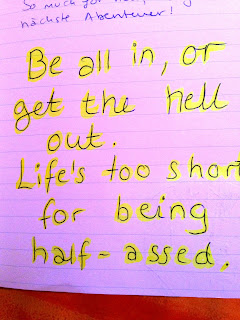 So much for
nächste Abenteuer!
Be all in, or
get the hell
out.
Life's too short
for being
half-assed.